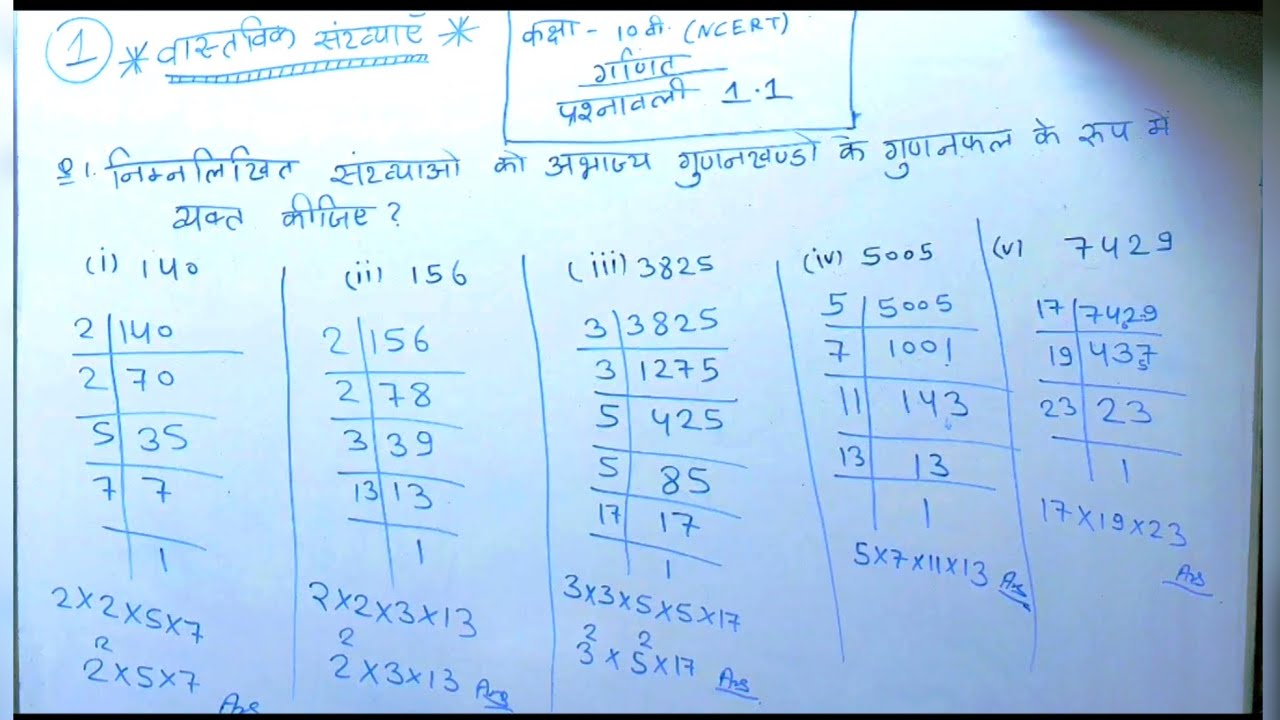 1 * वास्तविक संख्याएँ *
कक्षा - 10 वी. (NCERT)
गणित
प्रश्नावली 1.1
Q1. निम्नलिखित संख्याओ को अभाज्य गुणनखण्डो के गुणनफल के रूप में
व्यक्त कीजिए ?
(i) 140
2 | 140
2 | 70
5 | 35
7 | 7
1
2×2×5×7
2²×5×7 Ans
(ii) 156
2 | 156
2 | 78
3 | 39
13 | 13
1
2×2×3×13
2²×3×13 Ans
(iii) 3825
3 | 3825
3 | 1275
5 | 425
5 | 85
17 | 17
1
3×3×5×5×17
3²×5²×17 Ans
(iv) 5005
5 | 5005
7 | 1001
11 | 143
13 | 13
1
5×7×11×13 Ans
(v) 7429
17 | 7429
19 | 437
23 | 23
1
17×19×23
Ans